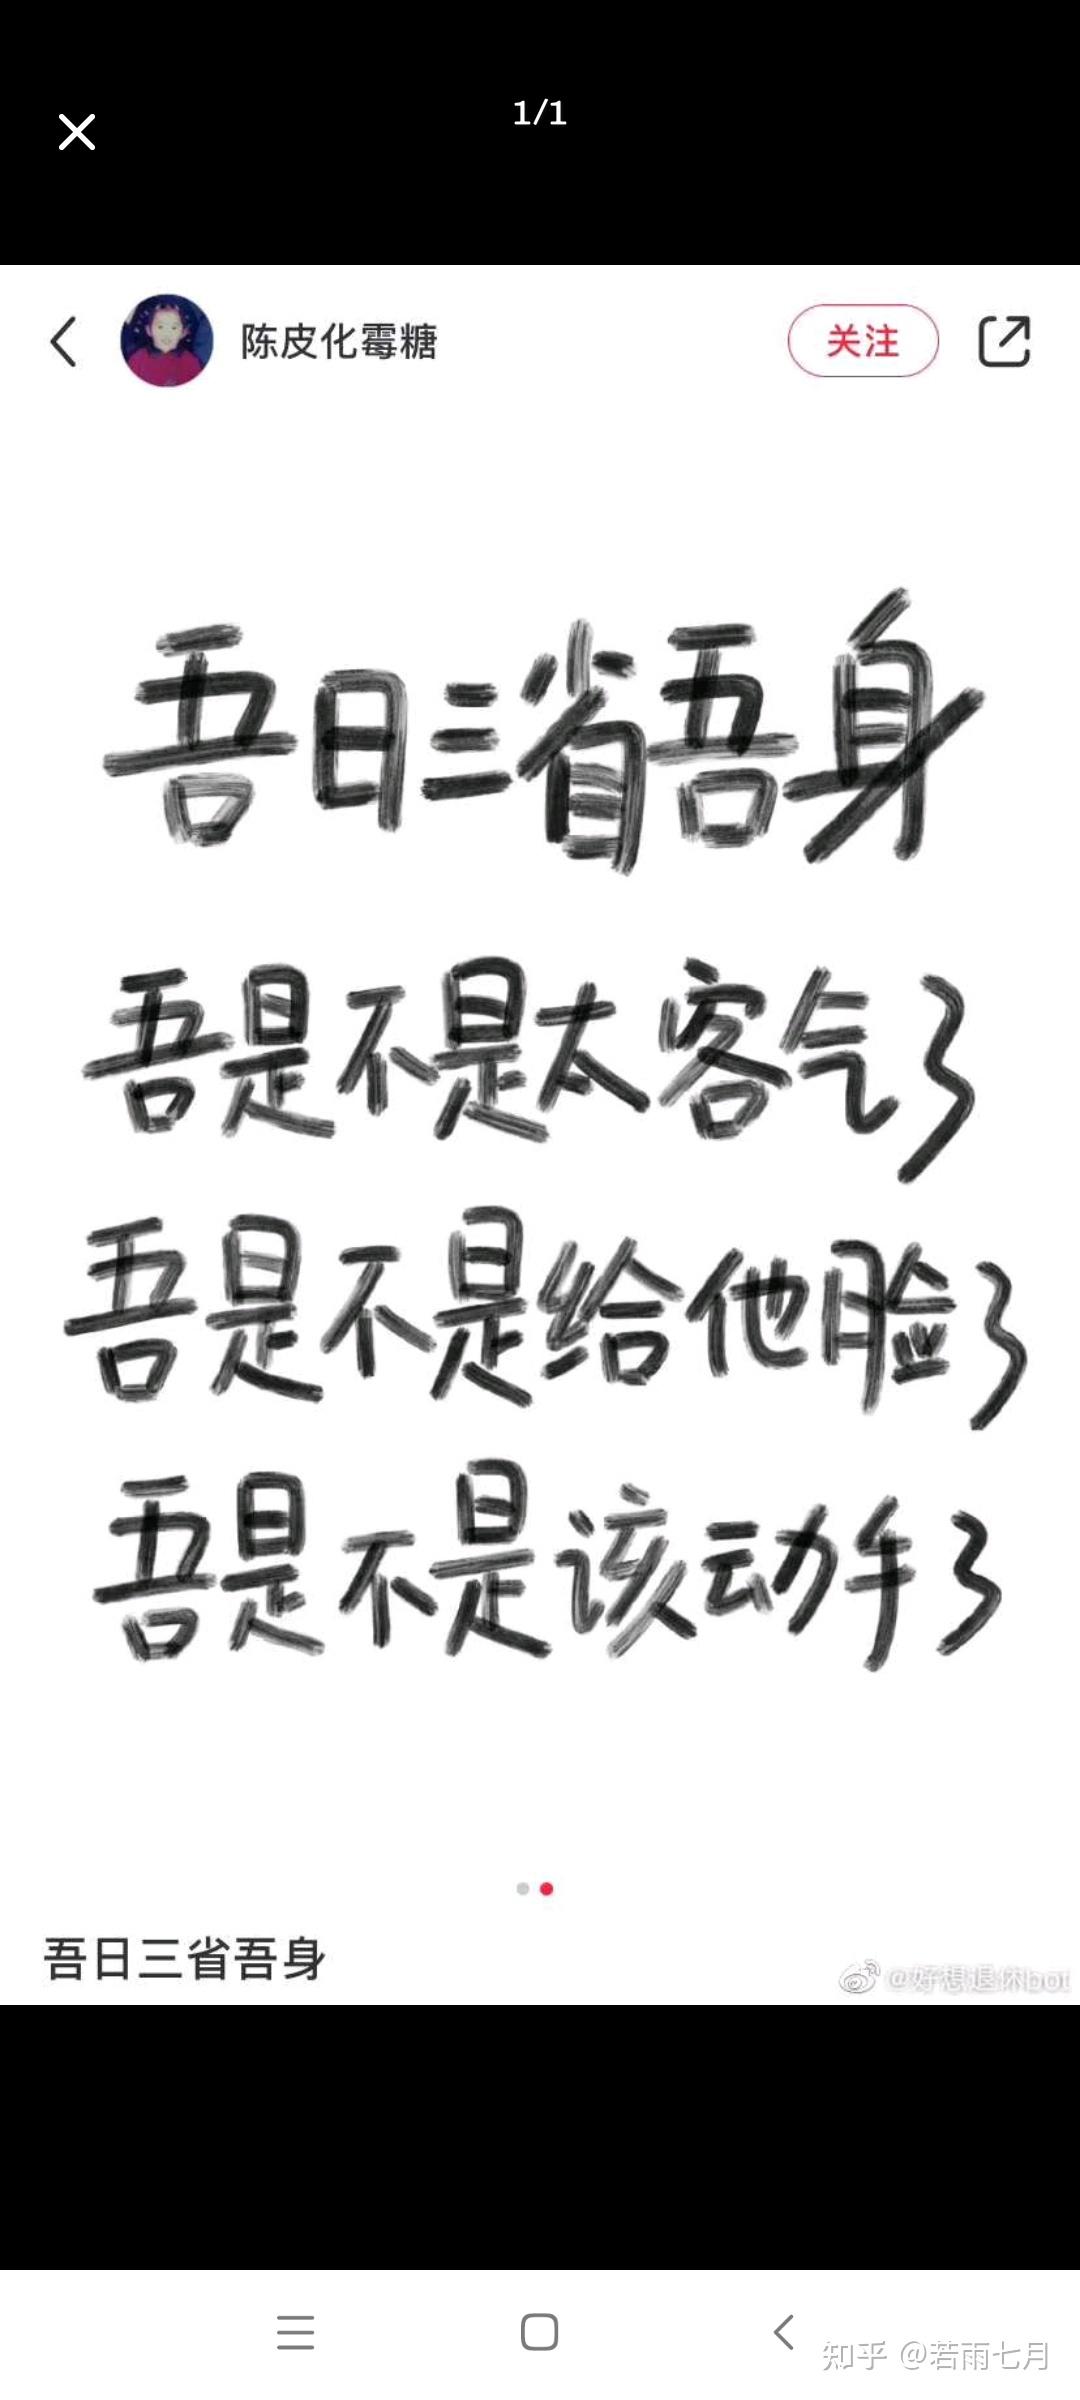 1/1
陈皮化霉糖
关注
吾日三省吾身
吾是不是太客气了
吾是不是给他脸了
吾是不是该动手了
吾日三省吾身
@好想退休bot
知乎 @若雨七月